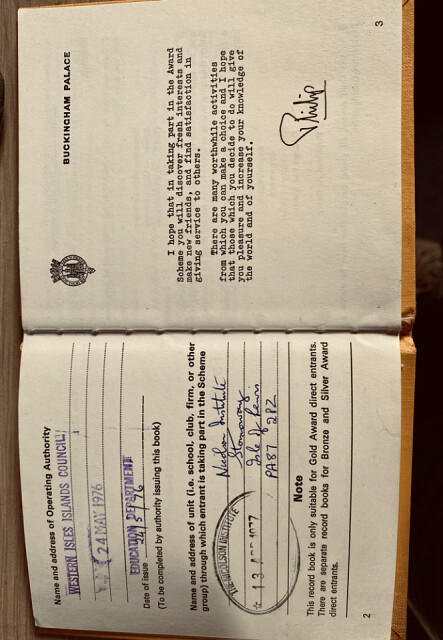 Name and address of Operating Authority
WESTERN ISLES ISLANDS COUNCIL
24 MAY 1976
EDUCATION DEPARTMENT
Date of issue 24/5/76
(To be completed by authority issuing this book)
Name and address of unit (i.e. school, club, firm, or other
group) through which entrant is taking part in the Scheme
Nicolson Institute
Stornoway
Isle of Lewis
PA87 2PZ
THE NICOLSON INSTITUTE
Note
This record book is only suitable for Gold Award direct entrants.
There are separate record books for Bronze and Silver Award
direct entrants.
2
BUCKINGHAM PALACE
I hope that in taking part in the Award
Scheme you will discover fresh interests and
make new friends, and find satisfaction in
giving service to others.
There are many worthwhile activities
from which you can make a choice and I hope
that those which you decide to do will give
you pleasure and increase your knowledge of
the world and of yourself.
Philip
3